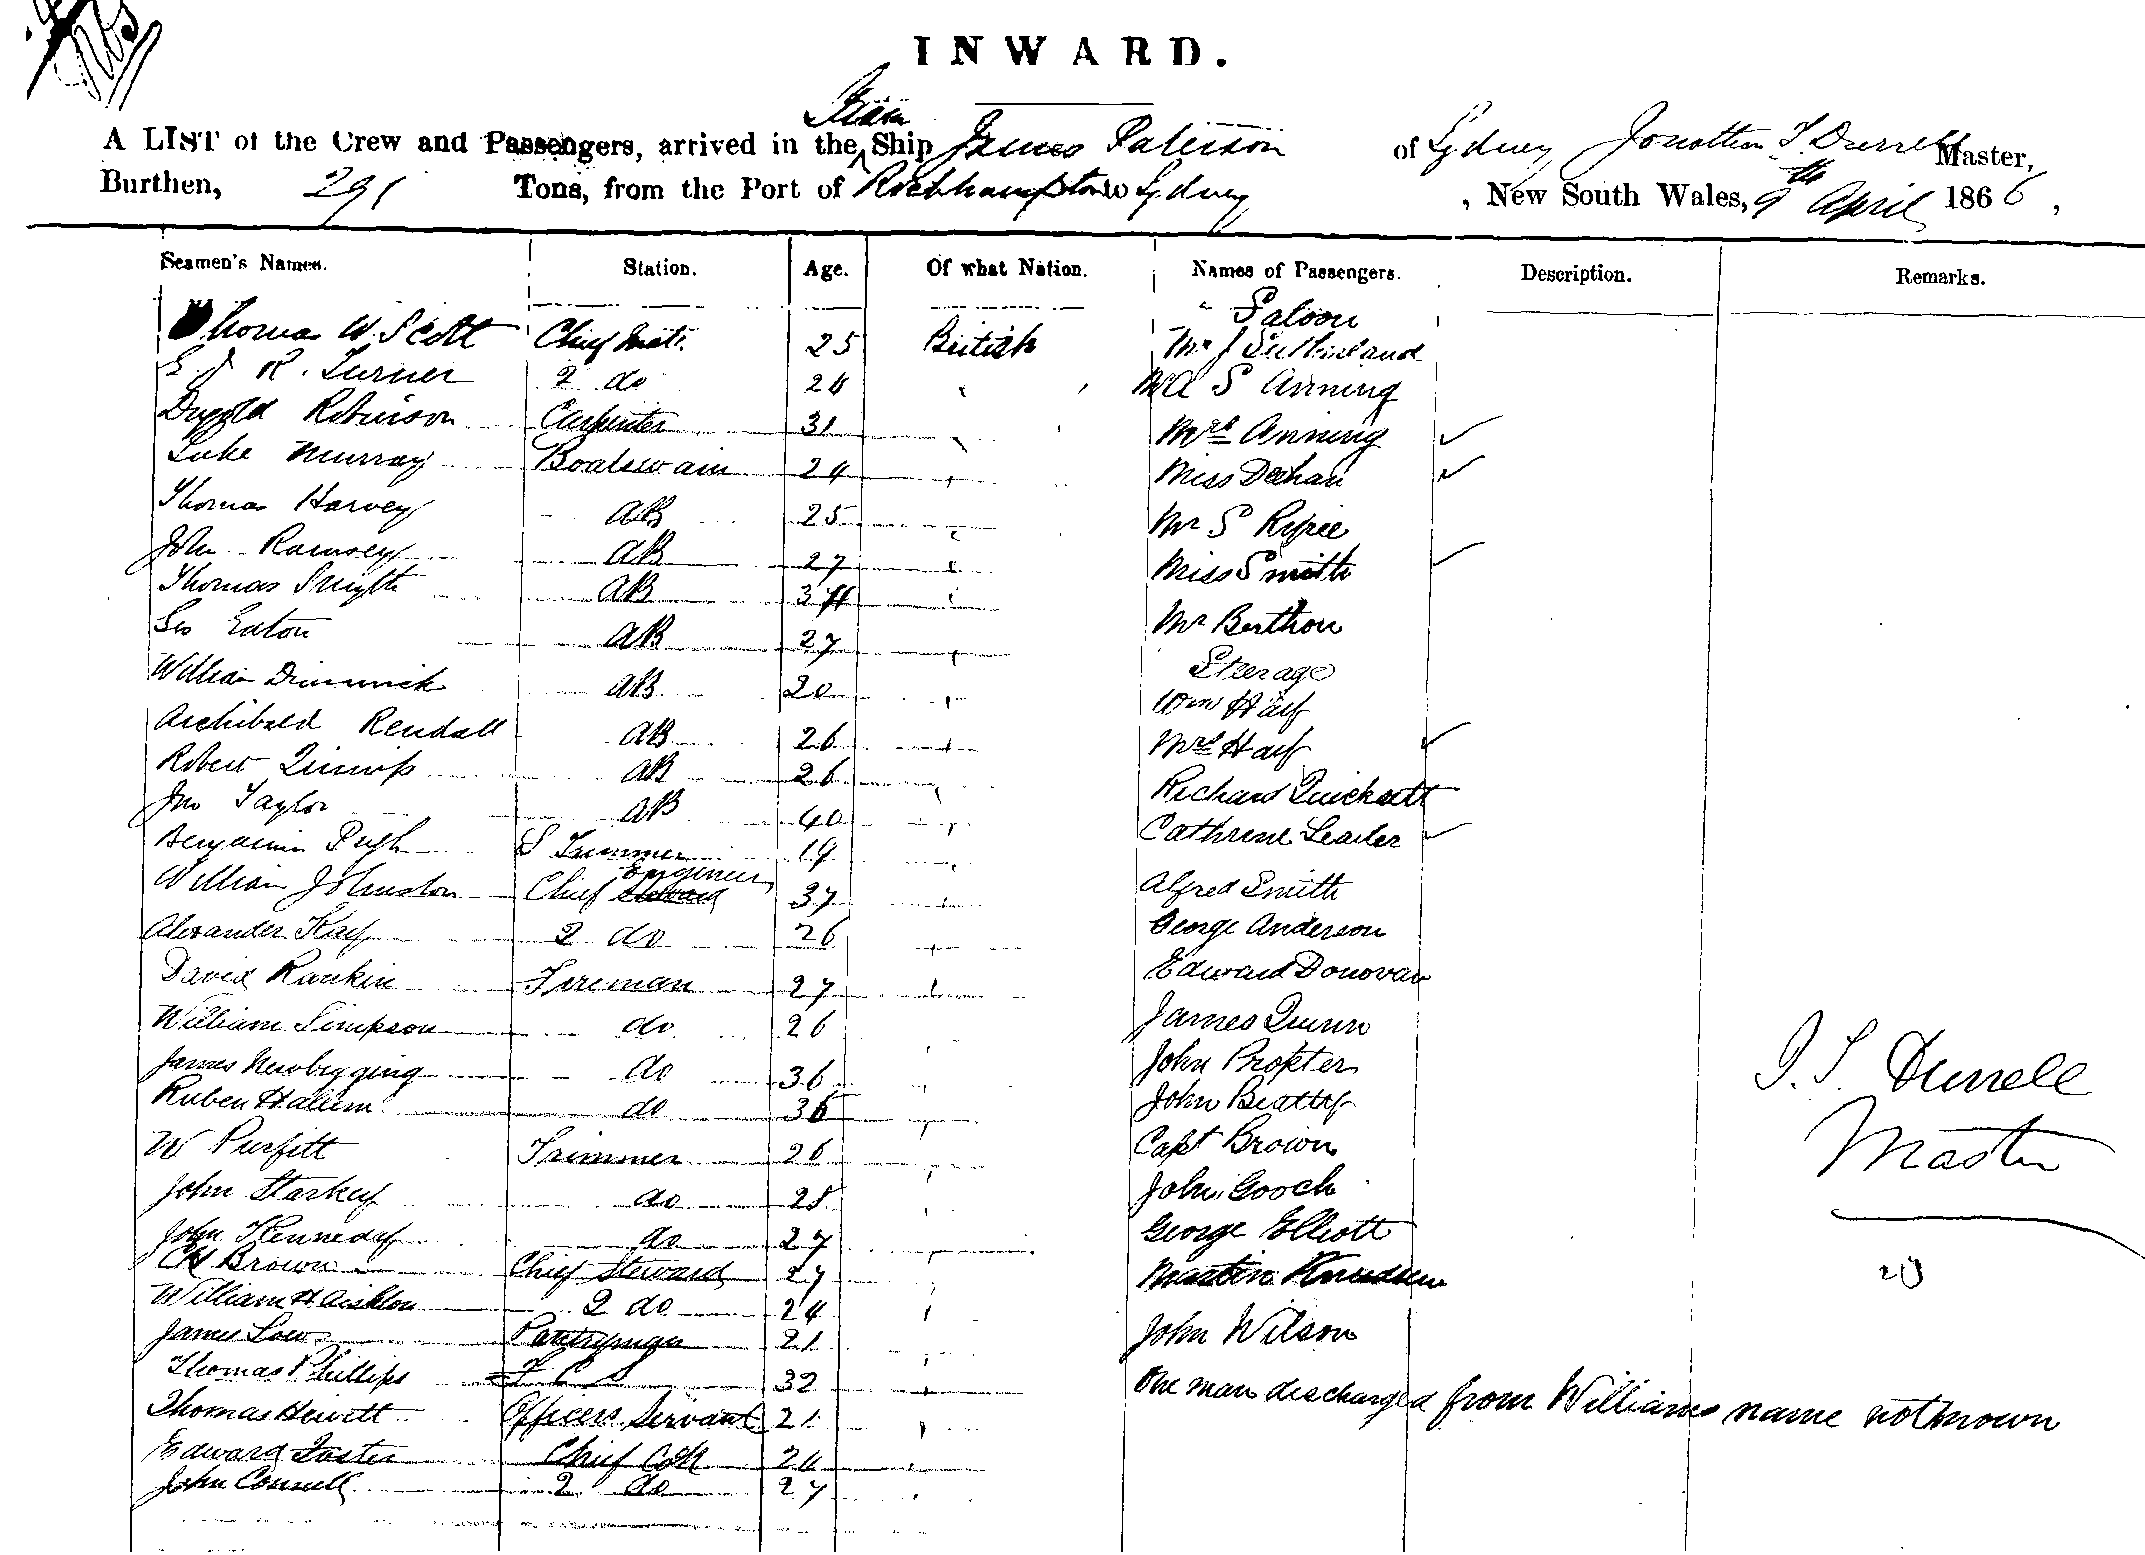 INWARD.
A LIST of the Crew and Passengers, arrived in the Steam Ship James Paterson of Sydney Jonathan S. Durrell Master,
Burthen, 291 Tons, from the Port of Rockhampton to Sydney, New South Wales, 9th April 1866,
Seamen's Names. Station. Age. Of what Nation. Names of Passengers. Description. Remarks.
Saloon
Thomas W. Scott Chief Mate 25 British Mr J Sutherland
R. Turner 2 do 24 S Anning
Robinson Carpenter 31 Mrs Anning
Luke Murray Boatswain 24 Miss
Thomas Harvey AB 25 Mr S
John Ramsey AB 27 Miss Smith
Thomas Smyth AB Mr Berthon
Geo Eaton AB 27 Steerage
William Dimmick AB 20 Wm Hay
Archibald Rendall AB 26 Mrs Hay
Robert AB 26 Richard
Jno Taylor AB 40 Cathrine
Benjamin Pugh S Trimmer 19
William Johnston Chief Engineer 37 Alfred Smith
Alexander Kay 2 do 26 George Anderson
David Rankin Fireman 27 Edward Donovan
William Simpson do 26 James Quinn
James Newbigging do 36 John Propter
Ruben do 36 John Beatty
W Purfitt Trimmer 26 Capt Brown
John Starkey do 28 John Gooch
John Kennedy do 27 George Elliott
Brown Chief Steward 27 Martin
William H 2 do 24
James Low Pantryman 21 John Wilson
Thomas Phillips 32
One man discharged from Williams name not known
Thomas Hewett Officers Servant 21
Edward Foster Chief 24
John Connell 2 do 27
J. S. Durrell
Master